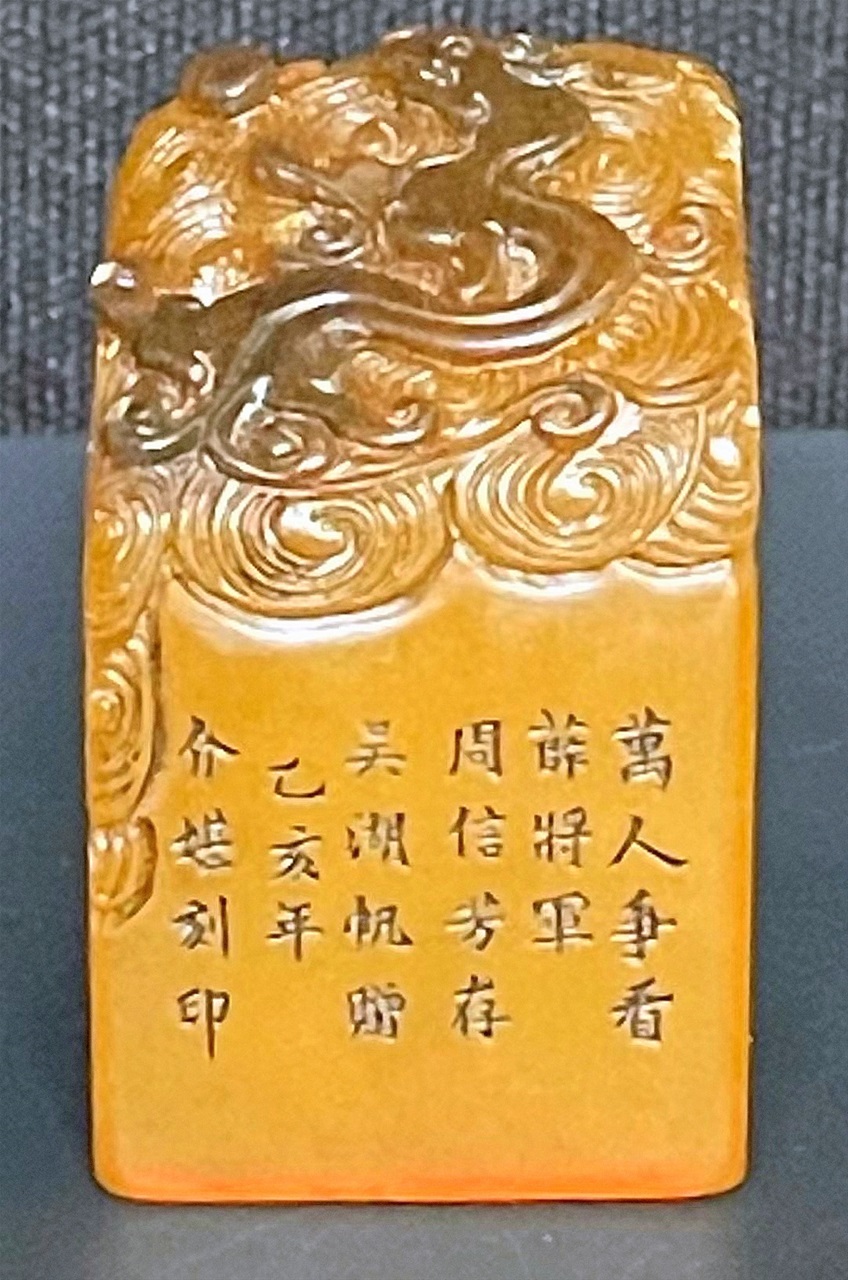 萬人爭看
薛將軍
周信芳存
吳湖帆贈
乙亥年
介堪刻印